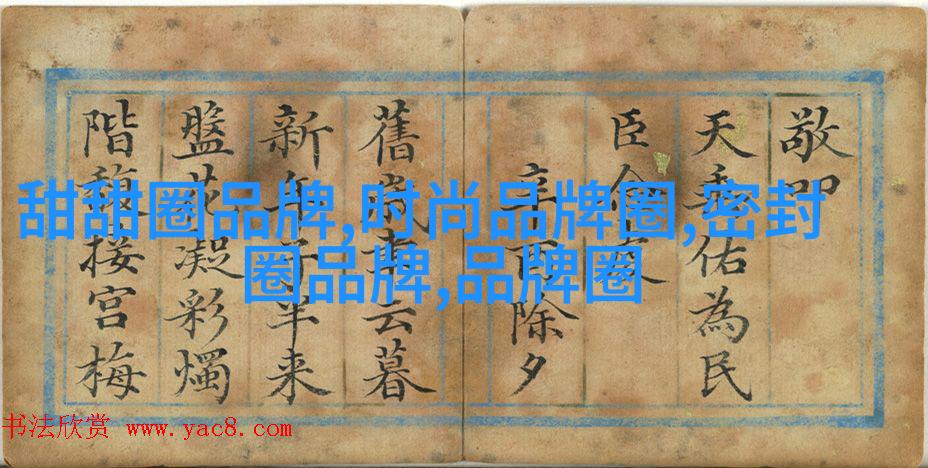 敬叩
天垂佑為民
臣
辛酉除夕
舊歲云暮
新年子半来
盤花凝彩燭
階馥接宮梅
甜甜圈品牌,时尚品牌圈,密封
圈品牌,品牌圈
书法欣赏 www.yac8.com